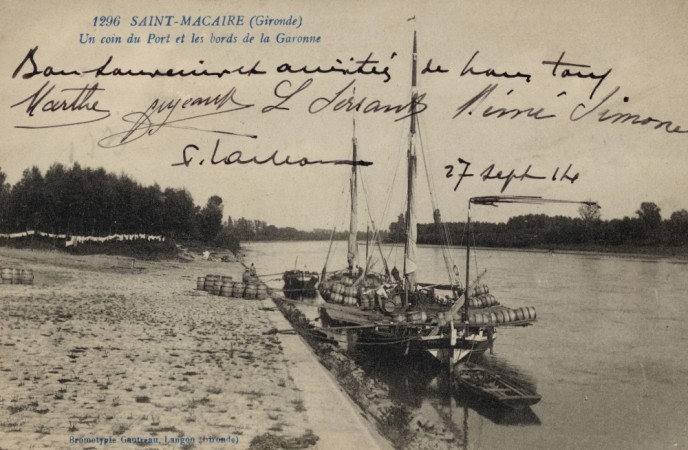 1296 SAINT-MACAIRE (Gironde)
Un coin du Port et les bords de la Garonne
Bon souvenir et amitiés de nous tous
Marthe L Rémé Simone
27 Sept 14
Bromotypie Gautreau, Langon (Gironde)